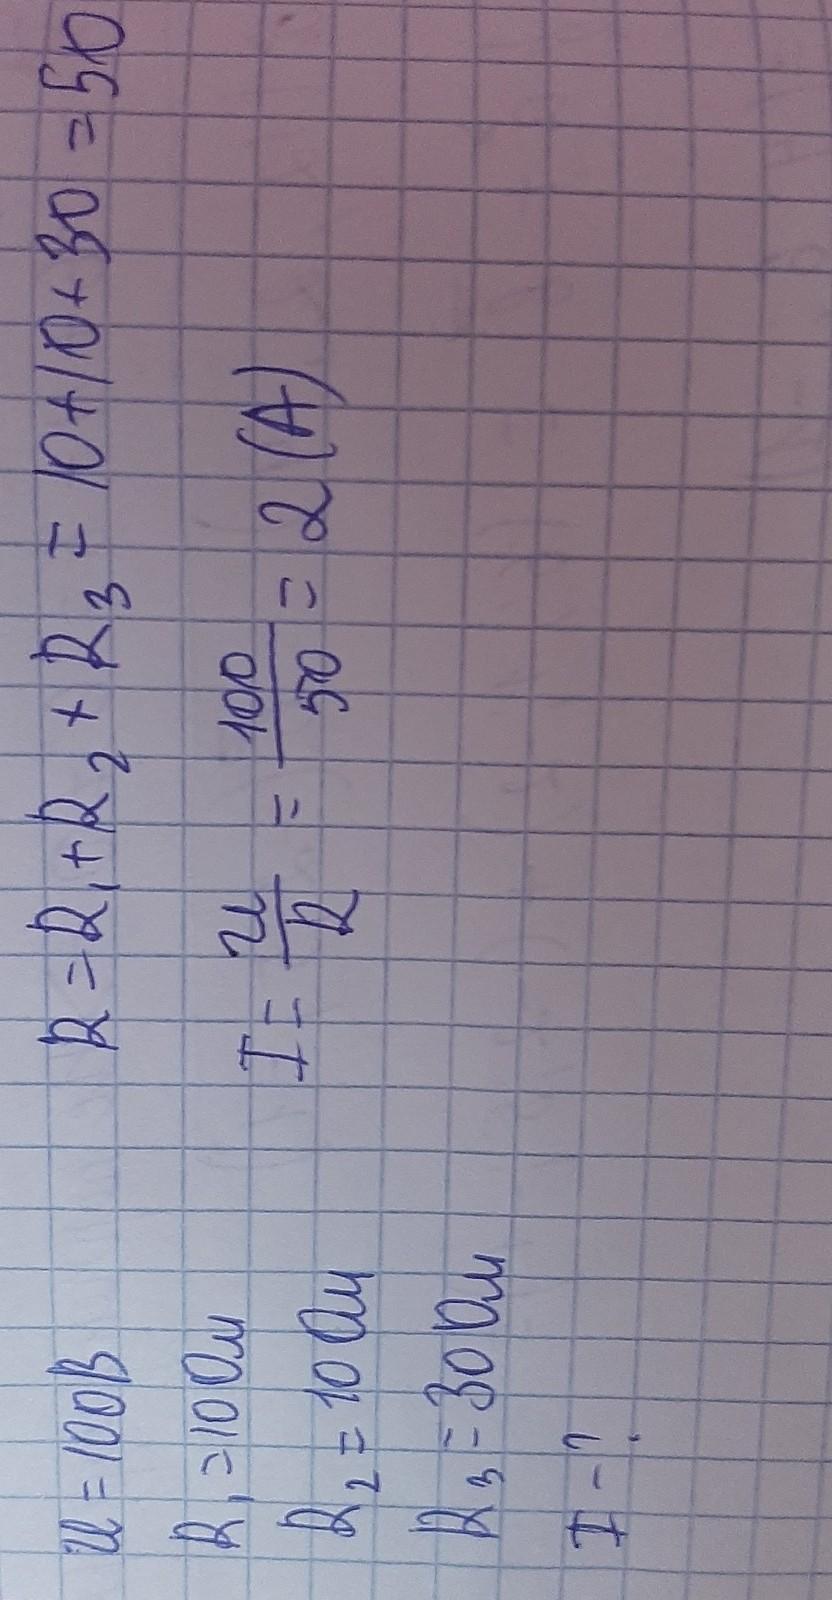 U = 100В
R₁ = 10 Ом
R₂ = 10 Ом
R₃ = 30 Ом
I - ?
R = R₁ + R₂ + R₃ = 10 + 10 + 30 = 50
I = U/R = 100/50 = 2 (А)